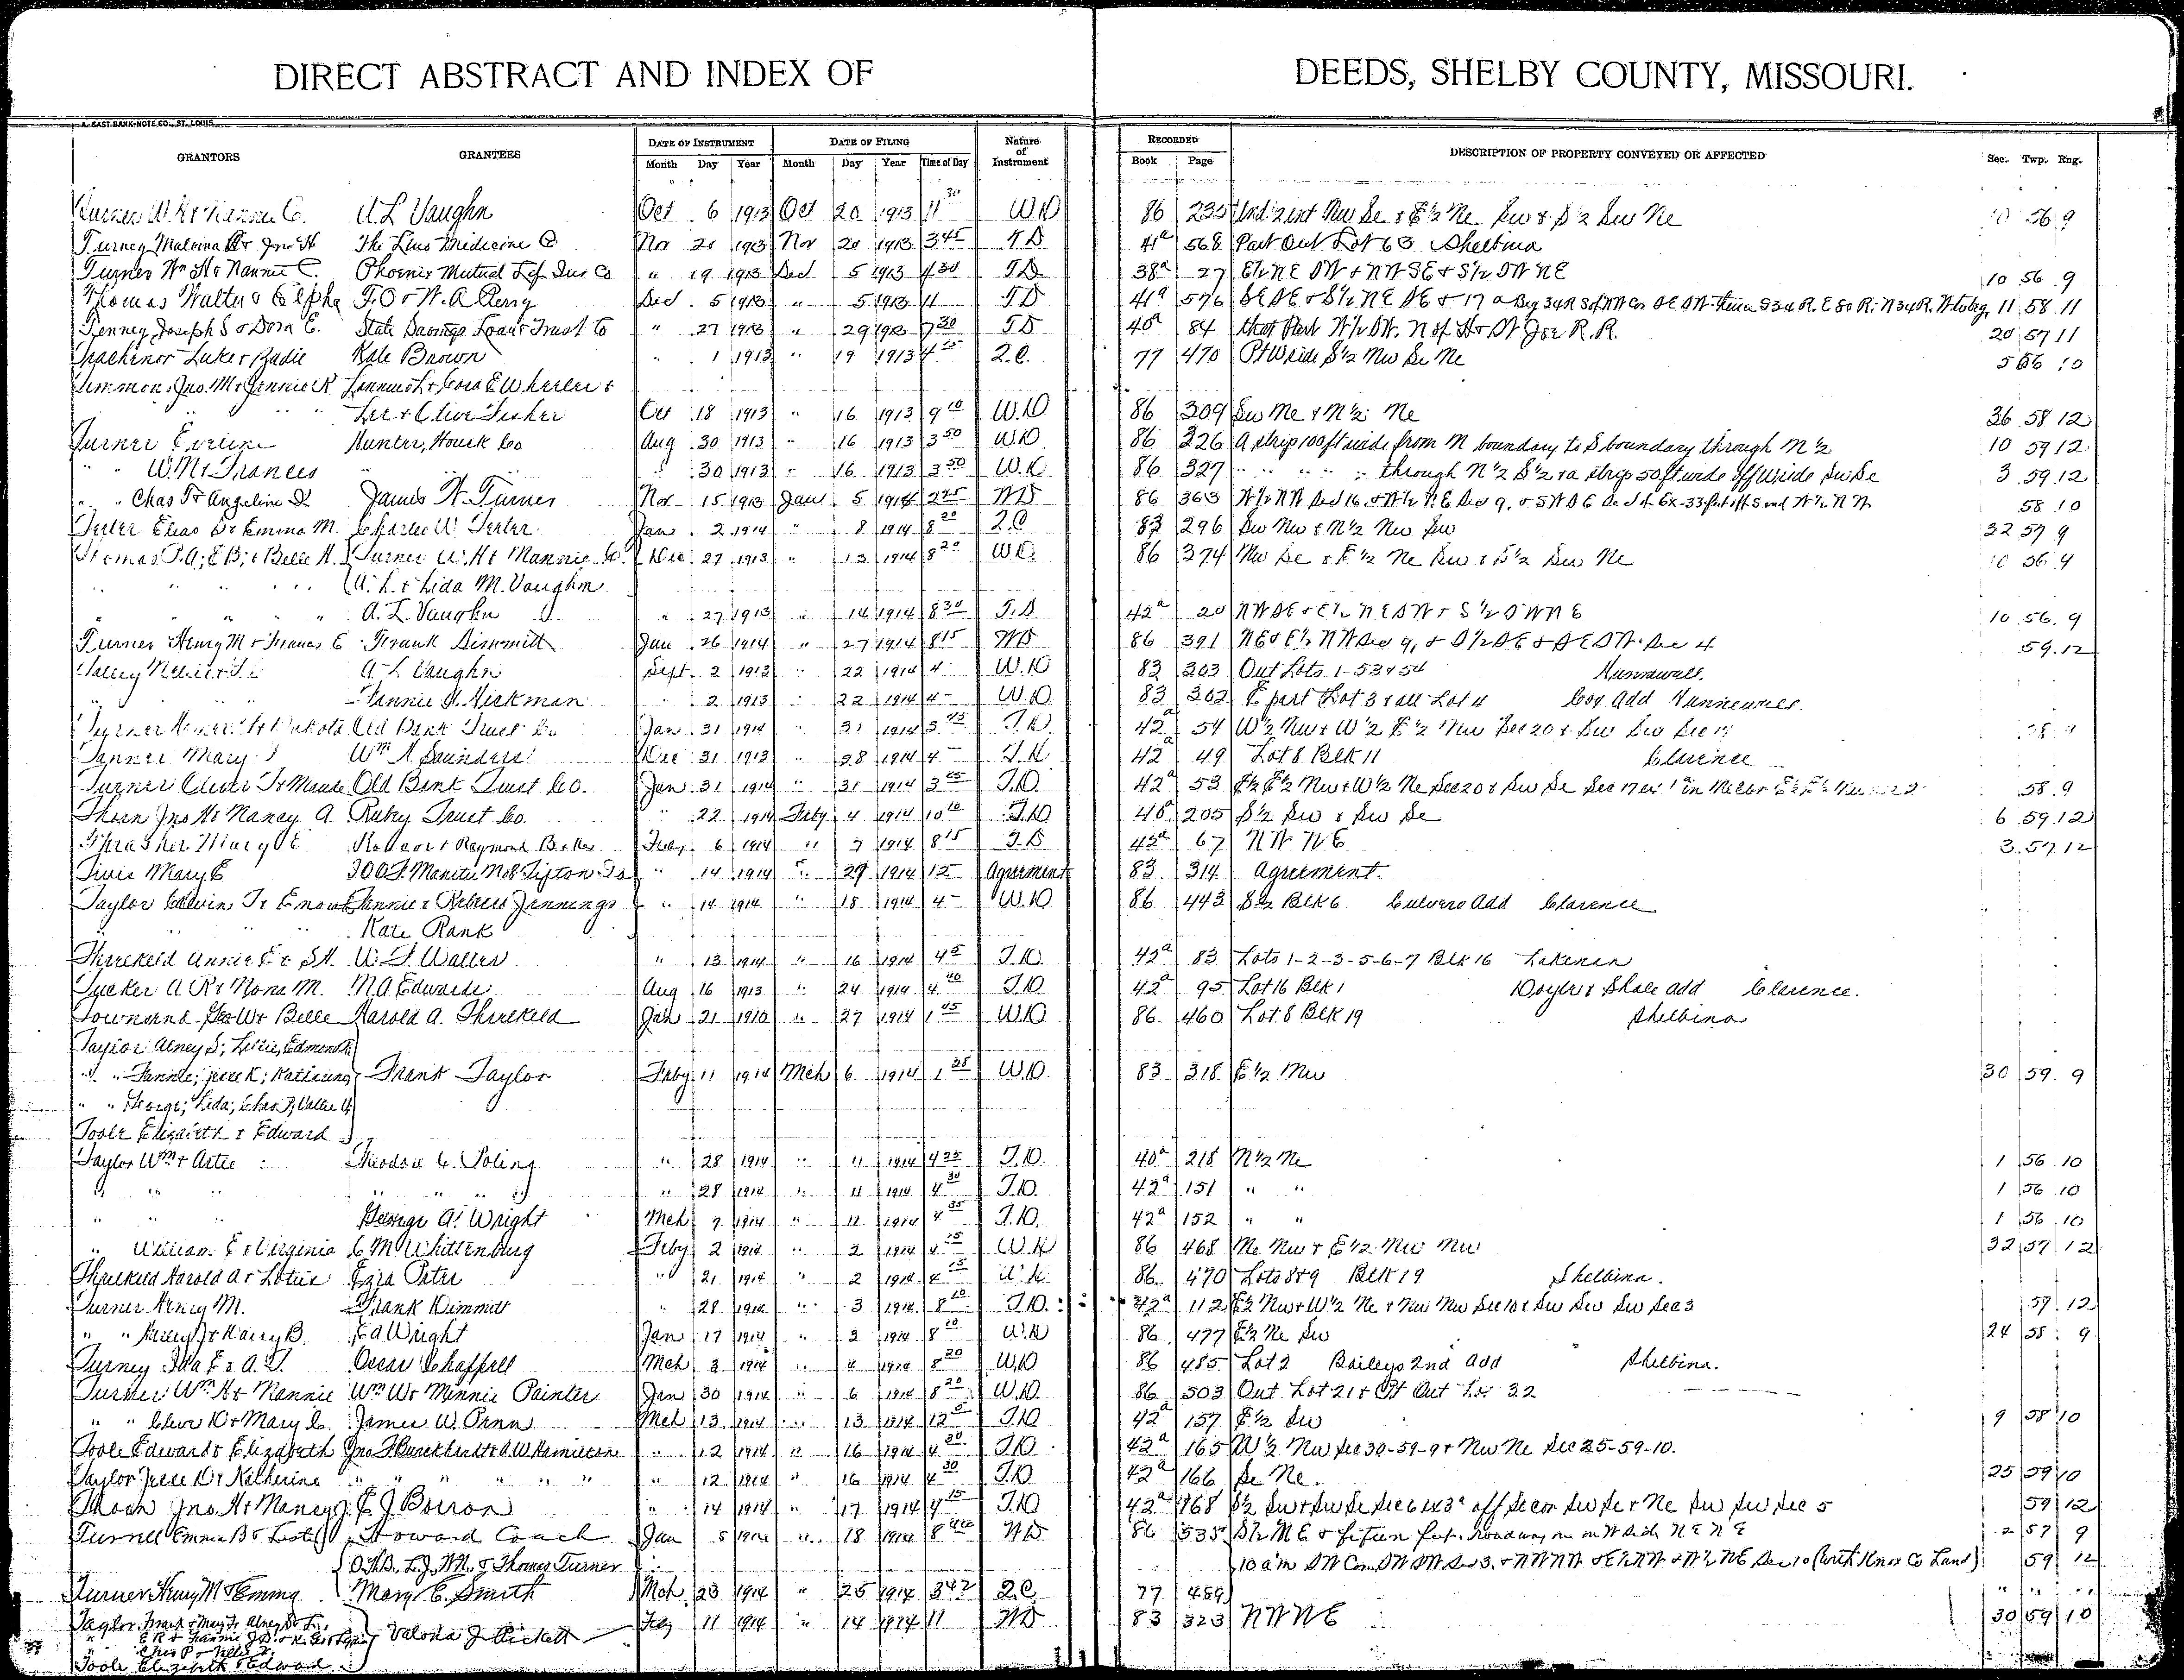 DIRECT ABSTRACT AND INDEX OF DEEDS, SHELBY COUNTY, MISSOURI.
A. GAST BANK-NOTE CO., ST. LOUIS
GRANTORS GRANTEES DATE OF INSTRUMENT DATE OF FILING Nature of Instrument RECORDED DESCRIPTION OF PROPERTY CONVEYED OR AFFECTED Sec. Twp. Rng.
Month Day Year Month Day Year Time of Day Book Page
Turner W.H & Nannie C. A.L Vaughn Oct 6 1913 Oct 20 1913 11 30 W.D 86 235 Und 1/2 int Nw Se & E 1/2 Ne Sw & S 1/2 Sw Ne 10 56 9
Turney Malvina & Jno H The Lius Medicine Co Nov 20 1913 Nov 20 1913 3 45 T D 41a 568 Part Out Lot 63 Shelbina
Turner Wm H & Nannie C. Phoenix Mutual Lif Ins Co " 19 1913 Dec 5 1913 4 30 T.D. 38a 27 E 1/2 NE SW & NW SE & S 1/2 SW NE 10 56 9
Thomas Walter & F.O & W.A Perry Dec 5 1913 " 5 1913 11 T D 41a 576 SE SE & S 1/2 NE SE & 17 a Beg 34 R S of NW Cor SE SW thence S 34 R. E 80 R. N 34 R. W to beg. 11 58 11
Tenney Joseph S & Dora E. State Savings Loan & Trust Co " 27 1913 " 29 1913 7 30 T D 40a 84 that Part W 1/2 SW. N of H & St Joe R.R. 20 57 11
Luke & Badie Kate Brown " 1 1913 " 19 1913 4 Q.C. 77 470 Pt W side S 1/2 Nw Se Ne 5 56 10
Timmons Jno. M & Jennie K & Cora E Wheeler &
" " " Lee & Olive Fisher Oct 18 1913 " 16 1913 9 10 W.D 86 309 Sw Ne & N 1/2 Ne 36 58 12
Turner Eveline Hunter, Houck Co Aug 30 1913 " 16 1913 3 50 W.D 86 326 A strip 100 ft wide from N boundary to S boundary through N 1/2 10 59 12
" " W.M & Frances " " 30 1913 " 16 1913 3 50 W.D 86 327 " " " " through N 1/2 S 1/2 & a strip 50 ft wide off W side Sw Se 3 59 12
" " Chas F & Angeline James W. Turner Nov 15 1913 Jan 5 1914 2 25 WD 86 363 W 1/2 NW Sec 16 & W 1/2 N.E Sec 9, & SW SE Sec Ex 33 feet off S end W 1/2 N W 58 10
Tuter Elias S & Emma M. Charles W. Jan 2 1914 " 8 1914 8 20 Q.C 83 296 Sw Nw & N 1/2 Nw Sw 32 57 9
Thomas P.A; E B; & Belle H. Turner W.H & Nannie C. Dec 27 1913 " 13 1914 8 20 W.D 86 374 Nw Se & E 1/2 Ne Sw & S 1/2 Sw Ne 10 56 9
" " " A. L. & Lida M. Vaughn
" " " A. L. Vaughn " 27 1913 " 14 1914 8 30 T.D 42a 20 NW SE & E 1/2 NE SW & S 1/2 SW NE 10 56 9
Turner Henry M & Frances E Frank Dimmitt Jan 26 1914 " 27 1914 8 15 WD 86 391 NE & E 1/2 NW Sec 9, & S 1/2 SE & SE SW Sec 4 59 12
A L Vaughn Sept 2 1913 " 22 1914 4 W.D 83 303 Out Lots 1-53 & 54 Hunnewell.
" " Fannie Hickman " 2 1913 " 22 1914 4 W.D. 83 302 E part Lot 3 & all Lot 4 Cox Add Hunnewell
Turner Old Bank Trust Co Jan 31 1914 " 31 1914 3 45 T.D 42a 54 W 1/2 Nw & W 1/2 E 1/2 Nw Sec 20 & Sw Sw Sec 17 58 9
Tanner Mary J Wm A Saunders Dec 31 1913 " 28 1914 4 T.D 42a 49 Lot 8 Blk 11 Clarence
Turner & Maude Old Bank Trust Co. Jan 31 1914 " 31 1914 3 45 T.D. 42a 53 E 1/2 E 1/2 Nw & W 1/2 Ne Sec 20 & Sw Se Sec 17 58 9
Thorn Jno H & Nancy A. Ruby Trust Co. " 22 1914 Feby 4 1914 10 10 T.D 40a 205 S 1/2 Sw & Sw Se 6 59 12
Thrasher Mary E & Raymond Feby 6 1914 " 7 1914 8 15 T.D 42a 67 NW NE 3 57 12
Mary E 300 F. Manitu No 8 Tipton " 14 1914 " 27 1914 12 Agreement 83 314 Agreement.
Taylor Calvin T & Fannie & Rebecca Jennings " 14 1914 " 18 1914 4 W.D 86 443 S 1/2 Blk 6 Culvers Add Clarence
" " " Kate Rank
Threlkeld Annie E & S.H. W. T. Waller " 13 1914 " 16 1914 4 5 T.D. 42a 83 Lots 1-2-3-5-6-7 Blk 16 Lakenan
Tucker A R & Mona M. M.A. Edwards Aug 16 1913 " 24 1914 4 40 T.D. 42a 95 Lot 16 Blk 1 Doyle & Shale add Clarence.
Townsend Geo W & Belle Harold A. Threlkeld Jan 21 1910 " 27 1914 1 45 W.D 86 460 Lot 8 Blk 19 Shelbina
Taylor Alney S; Lillie, Edmond
" " Fannie; Jesse K; Katherine Frank Taylor Feby 11 1914 Mch 6 1914 1 35 W.D. 83 318 E 1/2 Nw 30 59 9
" " George; Lida; Chas P;
Toole Elizabeth & Edward
Taylor Wm & Artie Theodore C. Poling " 28 1914 " 11 1914 4 25 T.D. 40a 218 N 1/2 Ne 1 56 10
" " " " " " 28 1914 " 11 1914 4 30 T.D. 42a 151 " " 1 56 10
" " " George A. Wright Mch 7 1914 " 11 1914 4 35 T.D. 42a 152 " " 1 56 10
" William E & Virginia C M Whittenburg Feby 2 1914 " 2 1914 4 15 W.D 86 468 Ne Nw & E 1/2 Nw Nw 32 57 12
Threlkeld Harold A & Lotus Ezra Peter " 21 1914 " 2 1914 4 15 W.D. 86 470 Lots 8 & 9 Blk 19 Shelbina.
Turner Henry M. Frank Dimmitt " 28 1914 " 3 1914 8 10 T.D. 42a 112 E 1/2 Nw & W 1/2 Ne & Nw Nw Sec 10 & Sw Sw Sw Sec 3 59 12
" " & Harry B. Ed Wright Jan 17 1914 " 3 1914 8 20 W.D 86 477 E 1/2 Ne Sw 24 58 9
Turney Ida E & A. T. Oscar Chappell Mch 3 1914 " 4 1914 8 20 W.D 86 485 Lot 2 Baileys 2nd Add Shelbina.
Turner Wm H & Nannie Wm W & Minnie Painter Jan 30 1914 " 6 1914 8 20 W.D. 86 503 Out Lot 21 & Pt Out Lot 32
" " Cleve D & Mary C. James W. Penn Mch 13 1914 " 13 1914 12 5 T.D 42a 157 E 1/2 Sw 9 58 10
Toole Edward & Elizabeth Jno F Burckhardt & A.W. Hamilton " 12 1914 " 16 1914 4 30 T.D 42a 165 W 1/2 Nw Sec 30-59-9 & Nw Ne Sec 25-59-10.
Taylor Jesse D & Katherine " " " " " " 12 1914 " 16 1914 4 30 T.D 42a 166 Se Ne. 25 59 10
Thorn Jno. H & Nancy E J Boiron " 14 1914 " 17 1914 4 15 T.D 42a 168 S 1/2 Sw & Sw Se Sec 6 ex 3a off Se cor Sw Se & Ne Sw Sw Sec 5 59 12
Turner Emma B & Lester Howard Coach Jan 5 1914 " 18 1914 8 WD 86 535 S 1/2 N E & fifteen feet roadway on W side NE NE 2 57 9
O.H.B., L.J., W.N., & Thomas Turner 10 a in SW Cor SW SW Sec 3. & NW NW & E 1/2 NW & W 1/2 NE Sec 10 (with Knox Co Land) 59 12
Turner Henry M & Emma Mary E. Smith Mch 23 1914 " 25 1914 3 42 Q.C 77 489 " " "
Taylor Frank & May F. Alney S & L. Valona J. Pickett Feby 11 1914 " 14 1914 11 WD 83 323 NW NE 30 59 10
" E R & Fannie
" Chas P &
Toole Elizabeth & Edward